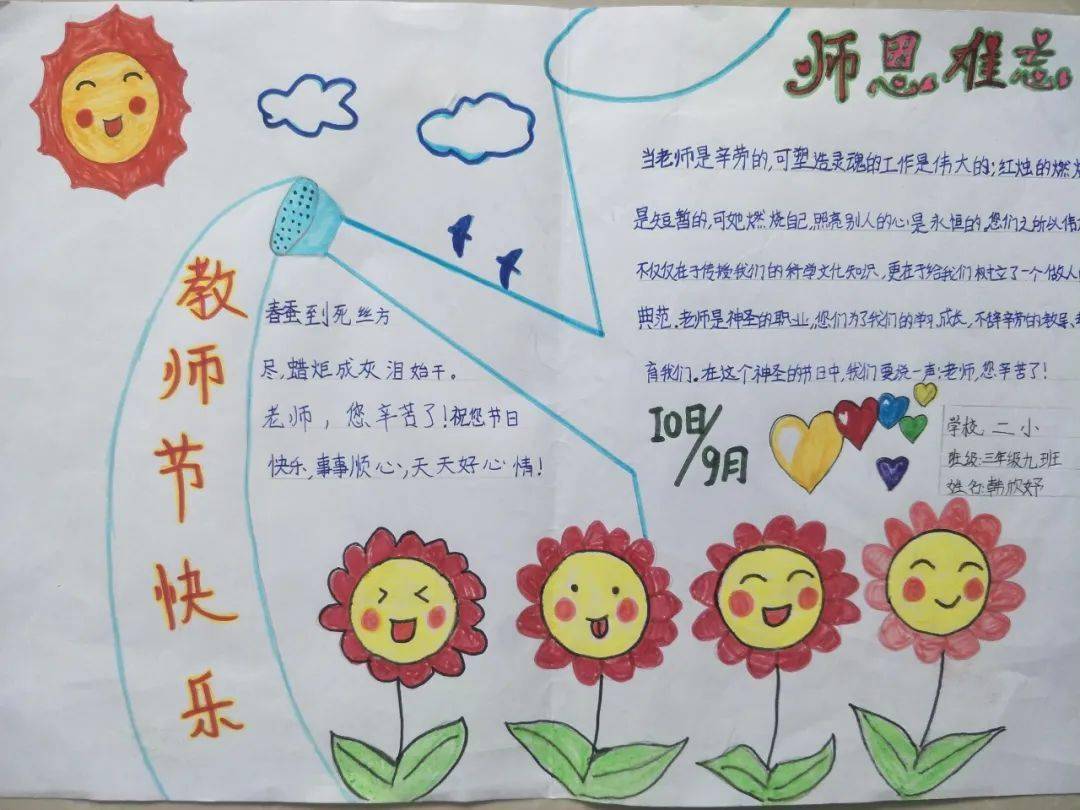 师恩难忘
教师节快乐
春蚕到死丝方
尽,蜡炬成灰泪始干。
老师,您辛苦了!祝您节日
快乐,事事顺心,天天好心情!
当老师是辛劳的,可塑造灵魂的工作是伟大的;红烛的燃
是短暂的,可她燃烧自己,照亮别人的心是永恒的.您们之所以伟
不仅仅在于传授我们的科学文化知识,更在于给我们树立了一个做人
典范.老师是神圣的职业,您们为了我们的学习,成长,不辞辛劳的教导、
育我们.在这个神圣的节日中,我们要说一声:老师,您辛苦了!
10日/9月
学校 二小
班级:三年级九班
姓名:韩欣妤